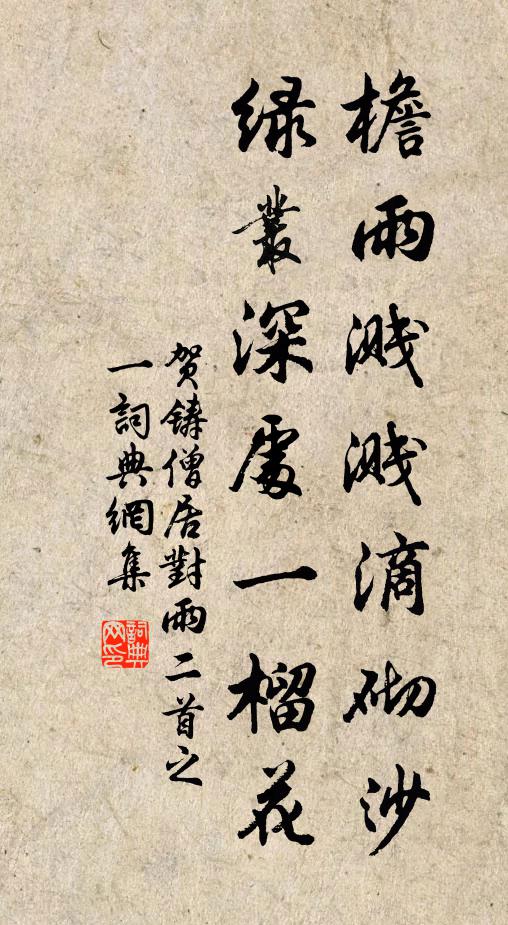 檐雨溅溅滴砌沙
绿丛深處一榴花
贺鑄僧居對雨二首之
一詞典網集
詞典网印